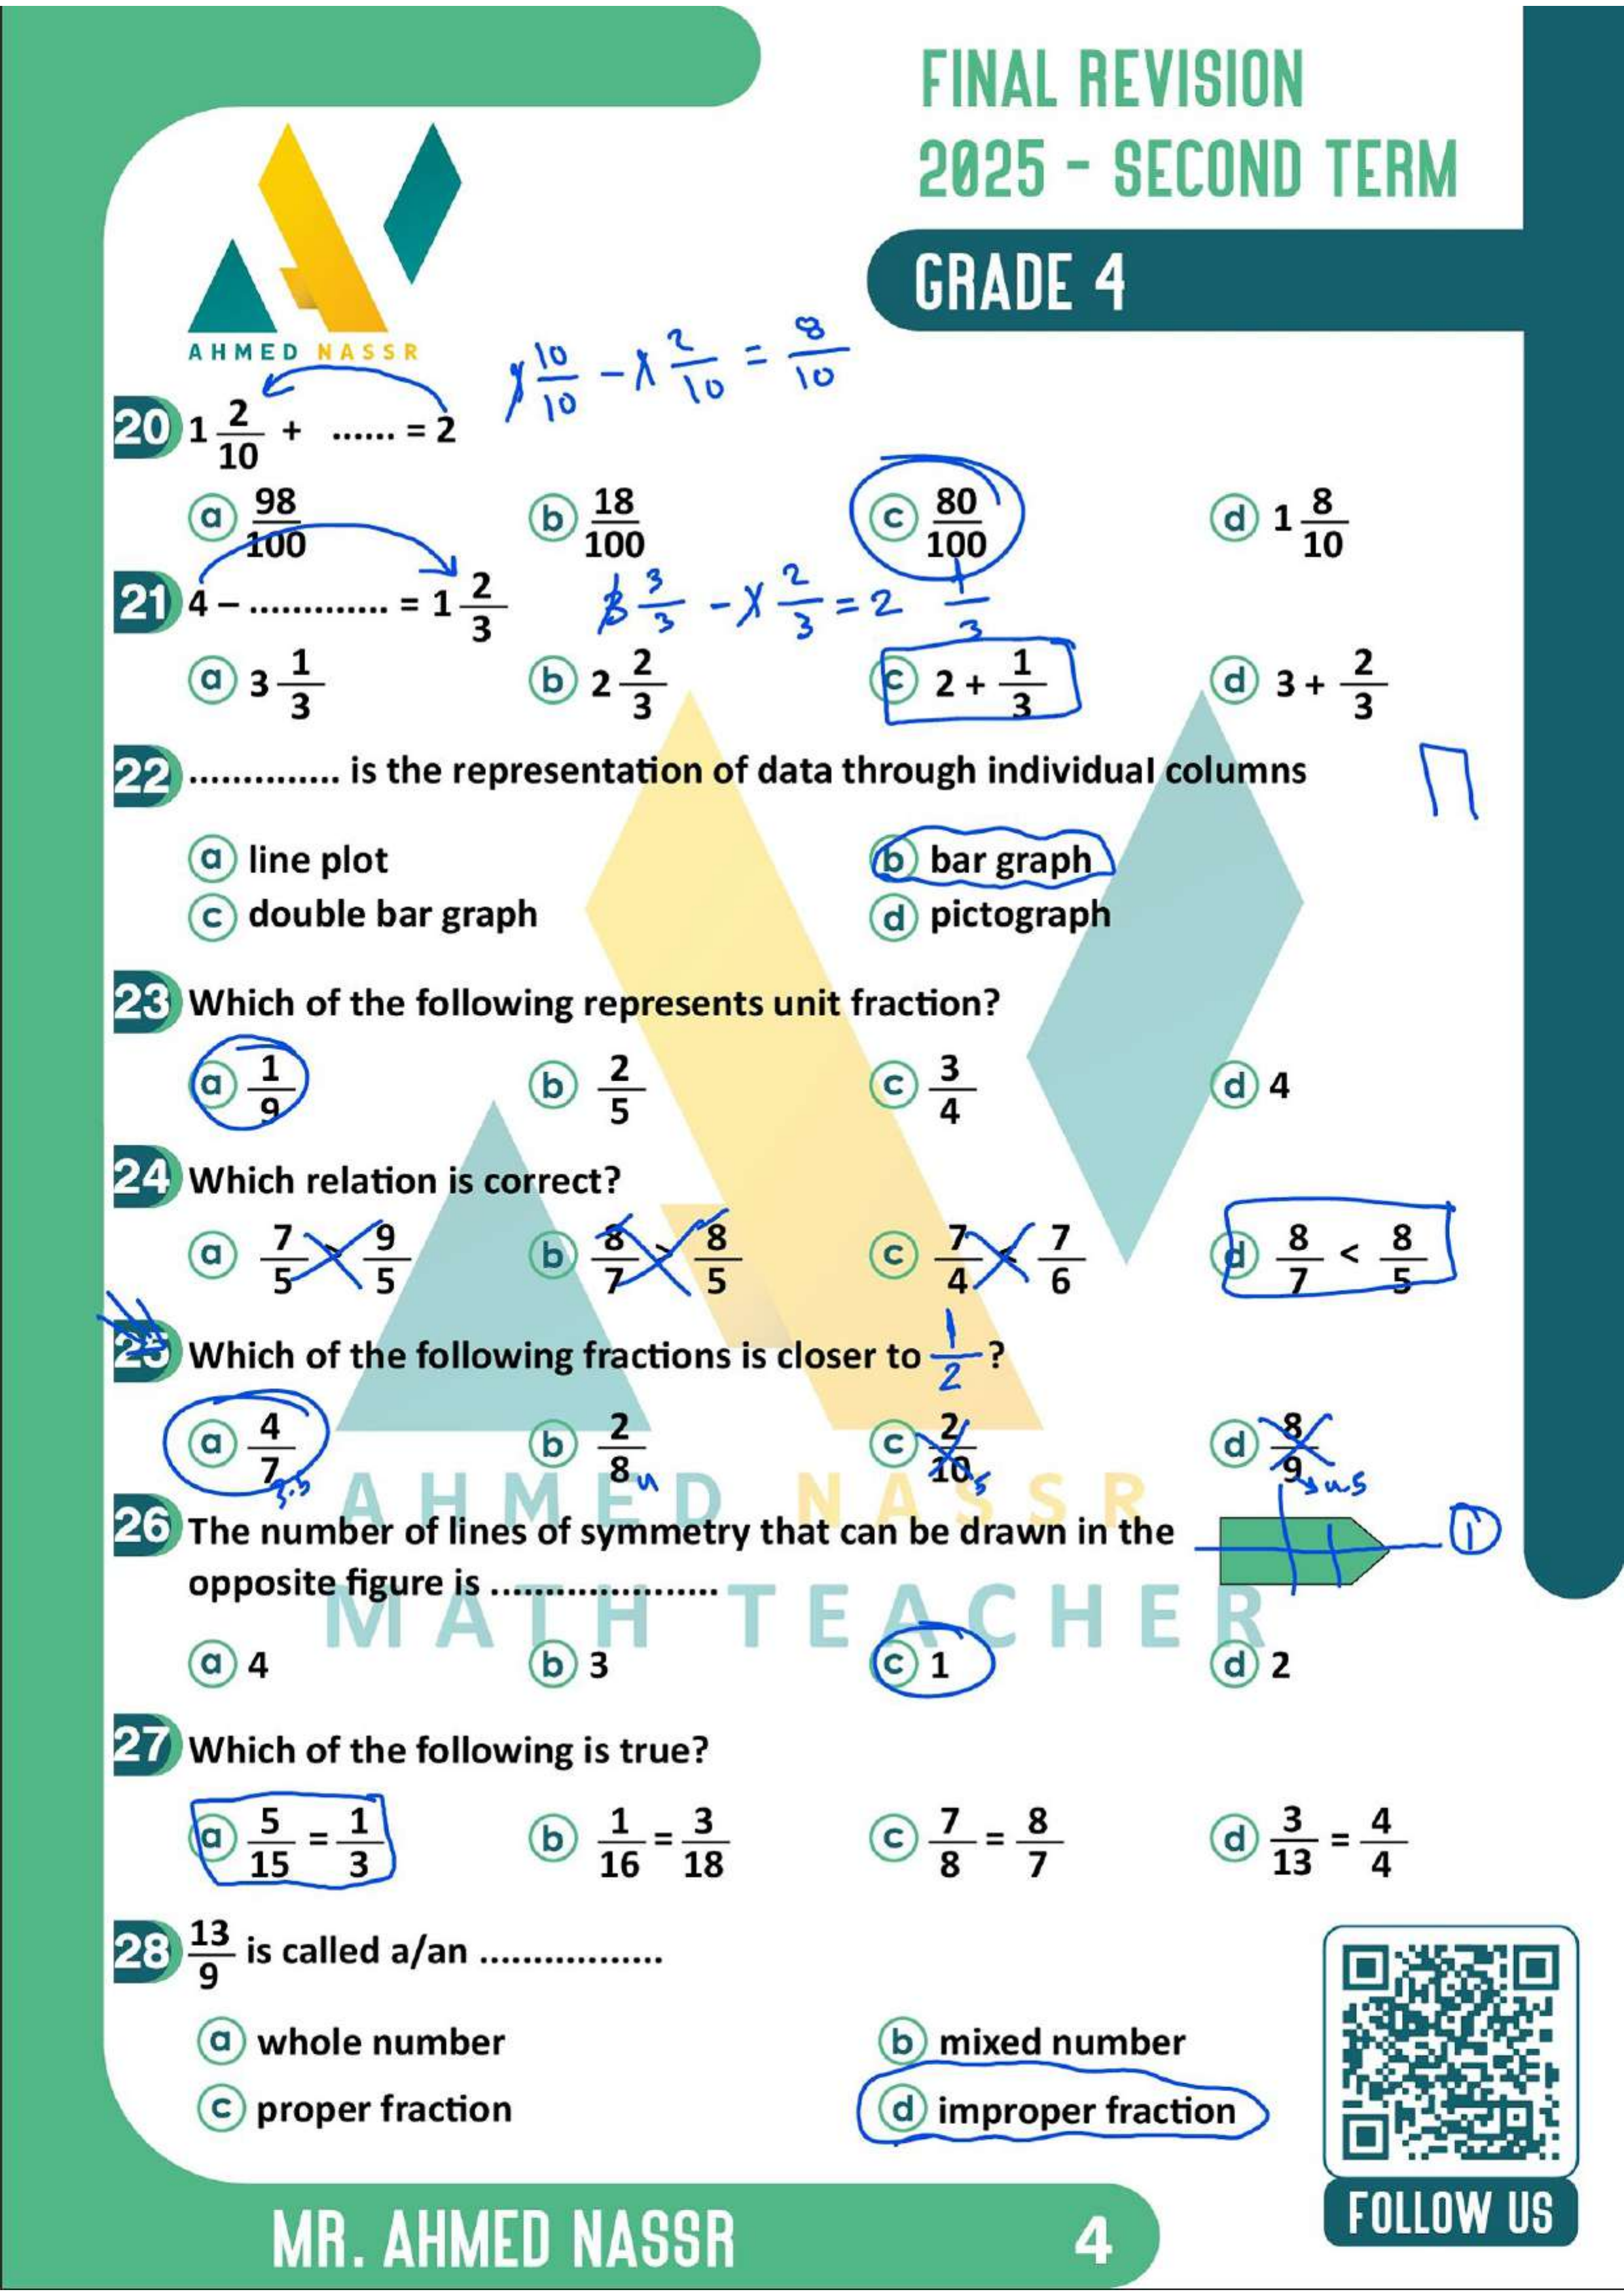 FINAL REVISION
2025 - SECOND TERM
GRADE 4
AHMED NASSR
1 10/10 - 1 2/10 = 8/10
20 1 2/10 + ...... = 2
a 98/100 b 18/100 c 80/100 d 1 8/10
21 4 – ............. = 1 2/3 3 3/3 - 1 2/3 = 2 1/3
a 3 1/3 b 2 2/3 c 2 + 1/3 d 3 + 2/3
22 .............. is the representation of data through individual columns
a line plot b bar graph
c double bar graph d pictograph
23 Which of the following represents unit fraction?
a 1/9 b 2/5 c 3/4 d 4
24 Which relation is correct?
a 7/5 > 9/5 b 8/7 > 8/5 c 7/4 < 7/6 d 8/7 < 8/5
25 Which of the following fractions is closer to 1/2 ?
a 4/7 3.5 b 2/8 4 c 2/10 5 d 8/9 4.5
AHMED NASSR
26 The number of lines of symmetry that can be drawn in the 1
opposite figure is .....................
MATH TEACHER
a 4 b 3 c 1 d 2
27 Which of the following is true?
a 5/15 = 1/3 b 1/16 = 3/18 c 7/8 = 8/7 d 3/13 = 4/4
28 13/9 is called a/an .................
a whole number b mixed number
c proper fraction d improper fraction
FOLLOW US
MR. AHMED NASSR 4